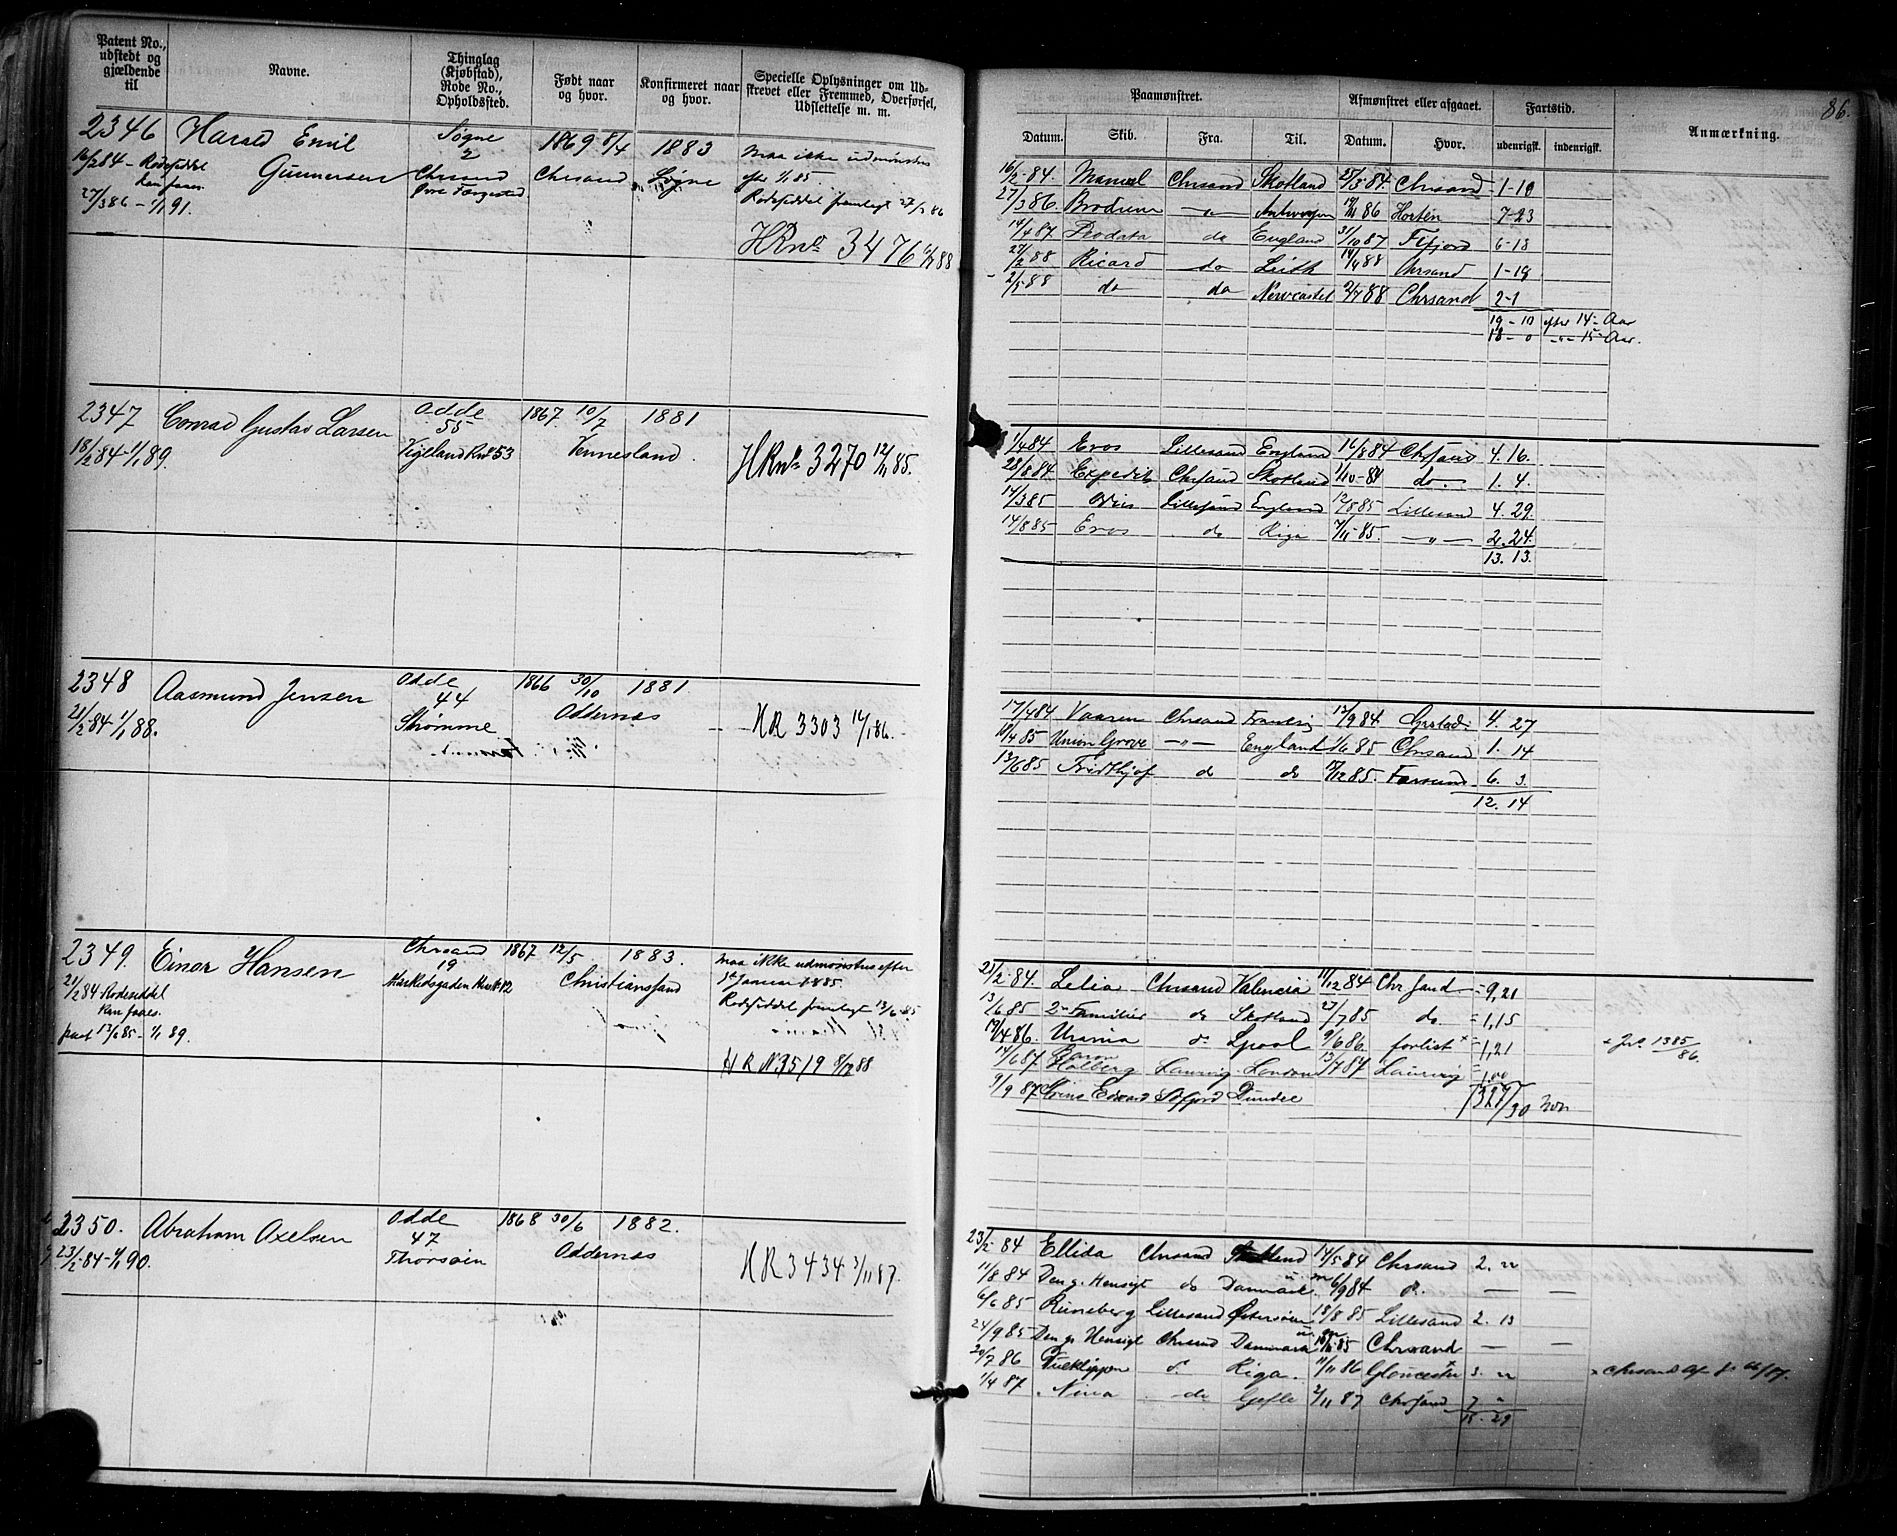 Patent No., udstedt og gjældende til
Navne.
Thinglag (Kjøbstad), Rode No., Opholdssted.
Født naar og hvor.
Konfirmeret naar og hvor.
Specielle Oplysninger om Udskrevet eller Fremmed, Overførsel, Udslettelse m. m.
2346 Harald Emil Gunnersen
16/2 84 - Rodeseddel kan faaes.
27/3 86 - 1/1 91.
Søgne 2
Chrsand
Øvre Færgested
1869 8/4 Chrsand
1883 Søgne
maa ikke udmønstres
efter 1/1 85.
Rodeseddel framlagt 27/3 86
HRno 3476 6/7 88
2347 Conrad Gustav Larsen
18/2 84 - 1/1 89.
Odde 55
Vigeland Rno 53
1867 10/7 1881
Vennesland.
HRno 3270 12/11 85.
2348 Aasmund Jensen
21/2 84 - 1/1 88.
Odde 44
Strømme
1866 30/10 1881
Oddernæs
HR 3303 14/1 86.
2349. Einar Hansen
21/2 84 Rodeseddel
kan faaes.
pat 13/6 85 - 1/1 89.
Chrsand 19
Markedsgaden
1867 12/5 1883.
Christianssand
maa ikke udmønstres efter
1st Januar 1885
Rodeseddel framlagt 13/6 85.
HR No 3519 8/12 88
2350. Abraham Axelsen
23/2 84 - 1/1 90.
Odde 47
Thorsøen
1868 30/6 1882.
Oddernæs
HR 3434 3/11 87.
86.
Paamønstret.
Afmønstret eller afgaaet.
Fartstid.
Anmærkning.
Datum. Skib. Fra. Til. Datum. Hvor. udenrigsk. indenrigsk.
16/2 84. Manuel Chrsand Skotland 25/3 84. Chrsand 1-10
27/3 86. Brodrene -"- Antwerpen 86 Horten 7-23
14/4 87. do England 31/10 87 6-18
27/2 88 Ricard do Leith 14/4 88 Chrsand 1-18
2/5 88 do do Newcastel 2/7 88 Chrsand 2-1
19-10 efter 14 Aar
18-0 -"- 15 Aar.
1/4 84 Eros Lillesand England 16/8 84 Chrsand 4.16.
28/8 84 Expedit Chrsand Skotland 1/10-84 do. 1.4.
14/3 85 Lillesand England 12/8 85 Lillesand 4.29.
14/8 85 Eros do Riga 7/11 85. -"- 2.24.
13.13.
17/4 84 Vaaren Chrsand 13/9 84 4.27
18/4 85 Union Grove -"- England 1/6 85 Chrsand 1.14
13/6 85 Fridthjof do do 15/12 85. Farsund. 6.3.
12.14
23/2 84. Lelia Chrsand Valencia 11/12 84 Chrsand = 9,21
13/6 85 2 Familier do Skotland 27/7 85 do = 1,15
19/4 86. Urania do Lpool 9/6 86. forlist x = 1,21 + Jno. 1385/86.
14/6 87 Holberg Laurvig London 13/7 87 Laurvig = 1,00
9/9 87 Prins Edward Dundee
23/2 84 Ellida Chrsand Skotland 14/5 84 Chrsand 2. "
11/8 84 Den g. Hensigt do Danmark 6/9 84 do - -
6/6 85 Runeberg Lillesand Østersøen 18/8 85 Lillesand 2. 13
24/9 85 Den g. Hensigt Chrsand Danmark 85 Chrsand - -
20/7 86 do Riga. 11/11 86 Gloucester x 3. "
1/4 87 Nina do Gefle 2/11 87 Chrsand 7 "